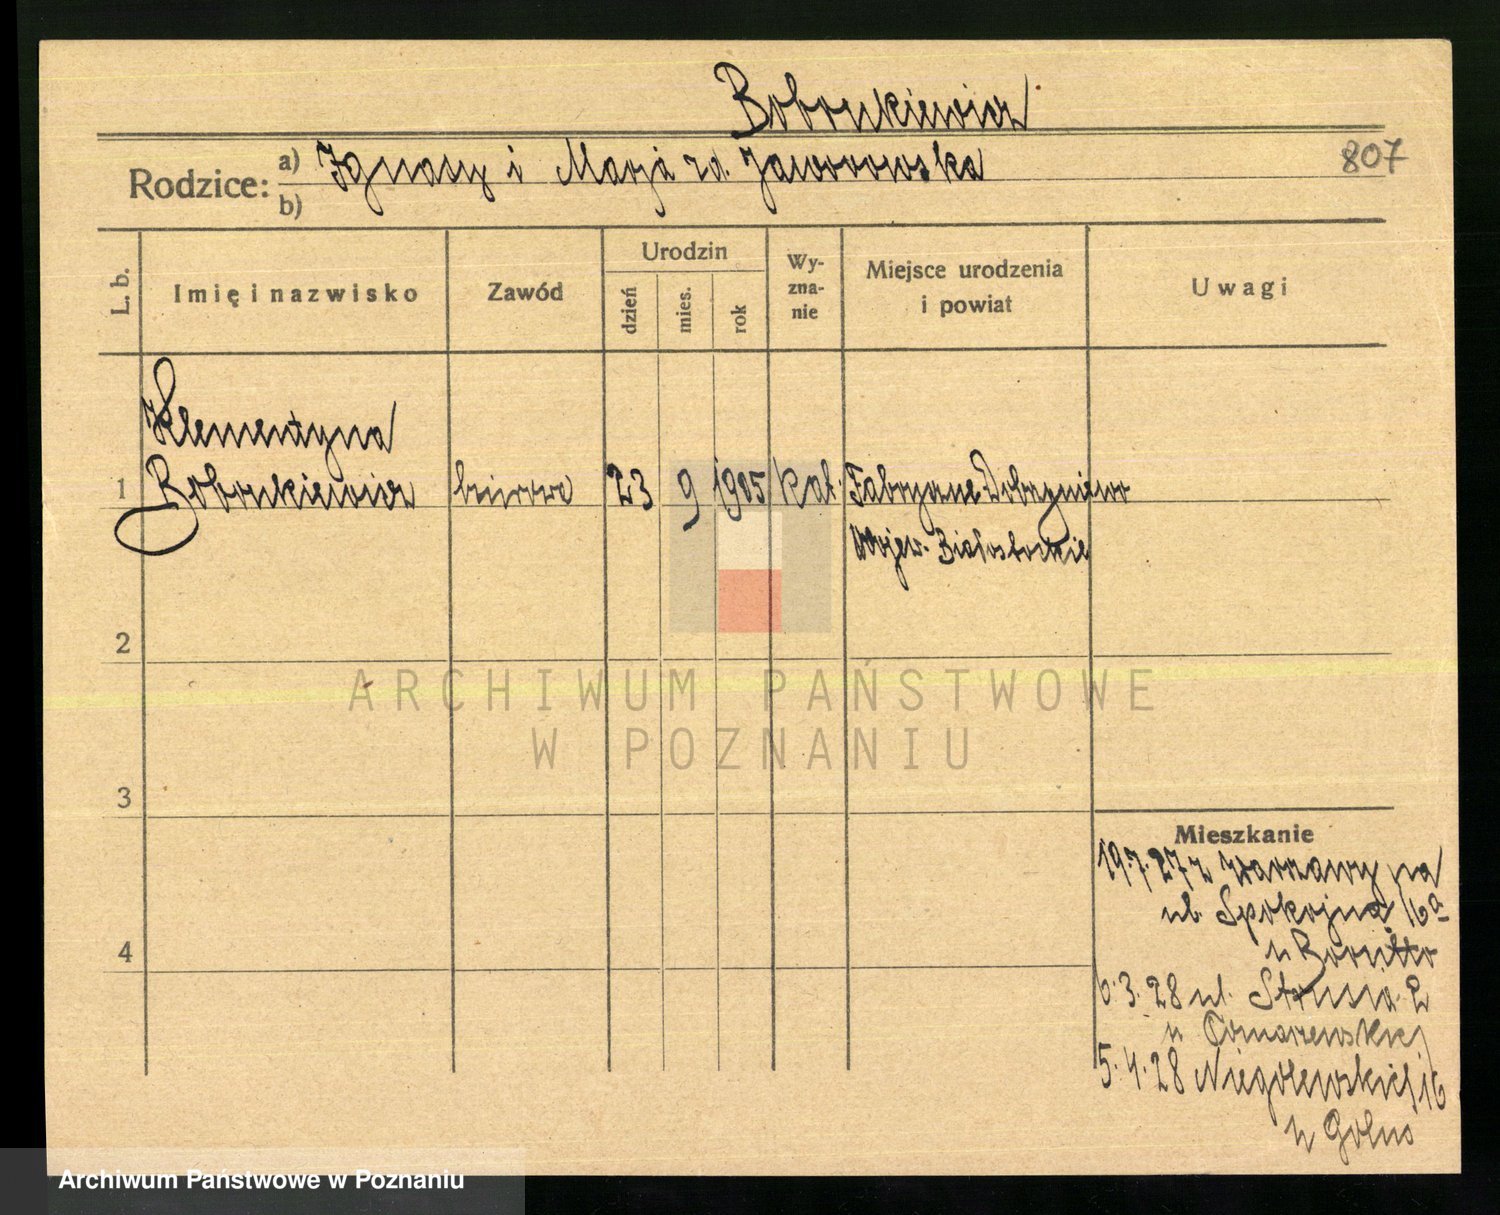 Bobrukiewicz
Rodzice: a) Ignacy i Marja zd. Jaworowska
807
b)
L. b.
Imię i nazwisko
Zawód
Urodzin
dzień
mies.
rok
Wy-
zna-
nie
Miejsce urodzenia
i powiat
Uwagi
Klementyna
1 Bobrukiewicz biurowa 23 9 1905 kat. Dobrzyniewo
Wojew. Białostockie
2
3
4
ARCHIWUM PAŃSTWOWE
W POZNANIU
Mieszkanie
19.7.27 z Warszawy na
ul. Spokojna 16a
u
6.3.28 ul. 2
u
5.4.28 Niegolewskich 16
u
Archiwum Państwowe w Poznaniu